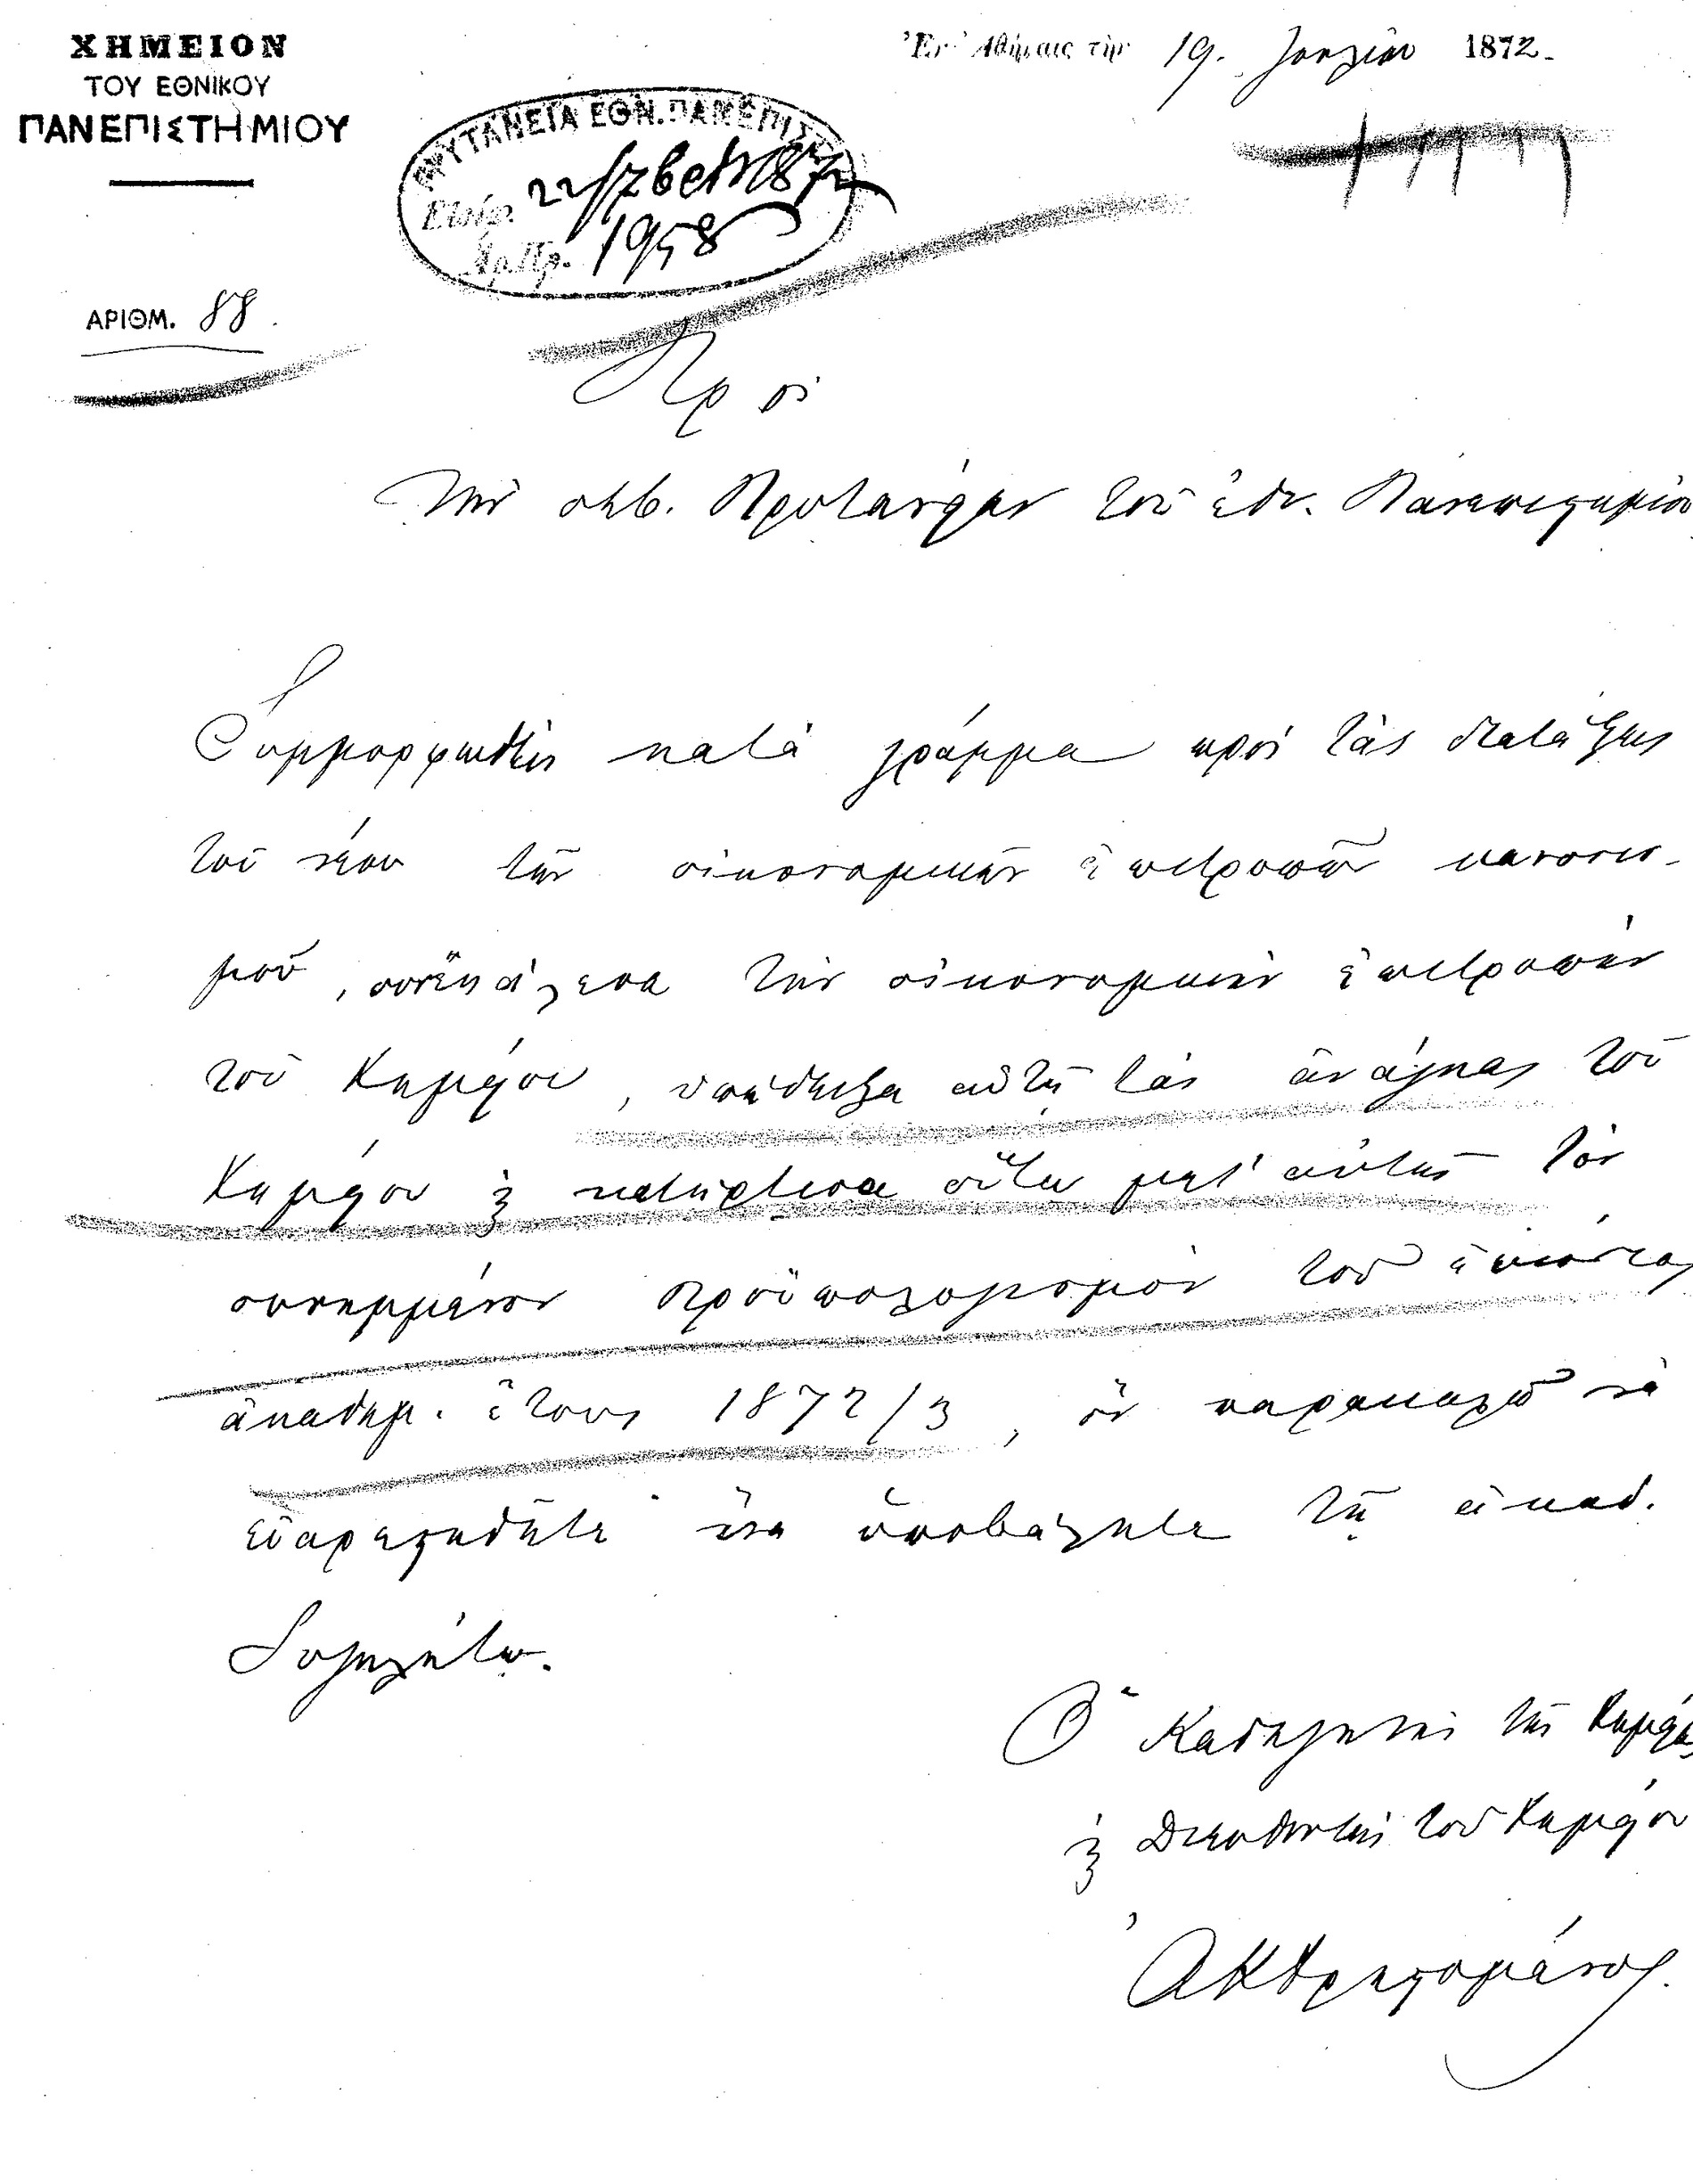 ΧΗΜΕΙΟΝ
ΤΟΥ ΕΘΝΙΚΟΥ
ΠΑΝΕΠΙΣΤΗΜΙΟΥ
Ἐν Ἀθήναις τὴν 19. Ἰουλίου 1872.
ΠΡΥΤΑΝΕΙΑ ΕΘΝ. ΠΑΝΕΠΙΣ
Εἰσήχ. 22/7βρ 1872
Ἀρ.Πρ. 1958
ΑΡΙΘΜ. 88.
Πρὸς
Τὴν σεβ. Πρυτανείαν τοῦ ἐθν. Πανεπιστημίου
Συμμορφωθεὶς κατὰ γράμμα πρὸς τὰς διατάξεις
τοῦ νέου τῶν οἰκονομικῶν ἐπιτροπῶν κανονισ-
μοῦ, συνεκάλεσα τὴν οἰκονομικὴν ἐπιτροπὴν
τοῦ Χημείου, ὑπέδειξα αὐτῇ τὰς ἀνάγκας τοῦ
Χημείου ϗ κατήρτισα οὕτω μετ' αὐτῆς τὸν
συνημμένον προϋπολογισμὸν τοῦ ἐνεστῶτος
ἀκαδημ. ἔτους 1872/3, ὃν παρακαλῶ νὰ
εὐαρεστηθῆτε ἵνα ὑποβάλητε τῇ ἀκαδ.
Συγκλήτῳ.
Ὁ Καθηγητὴς τῆς Χημείας
ϗ Διευθυντὴς τοῦ Χημείου
ἈΚΧρηστομάνος.